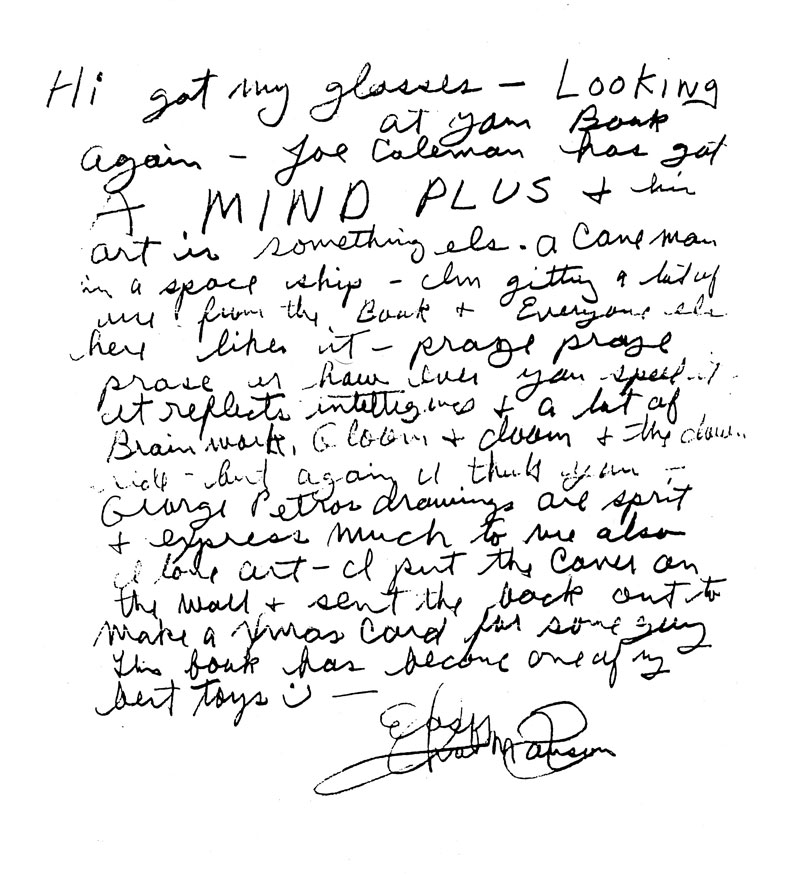 Hi got my glasses – Looking
at your Book
again – Joe Coleman has got
A MIND PLUS + his
art is something els. a Caveman
in a space ship – Im gitting a lot of
use from the Book + Everyone els
here likes it – praze praze
prase or how ever you spell it
it reflects + a lot of
Brain work. Gloom + doom + the down
side – but again I thank you –
George Petros drawings are sprit
+ express much to me also
I love art – I put the Cover on
the wall + sent the back out to
Make a Xmas Card for some guy
This book has become one of my
best toys –
Manson